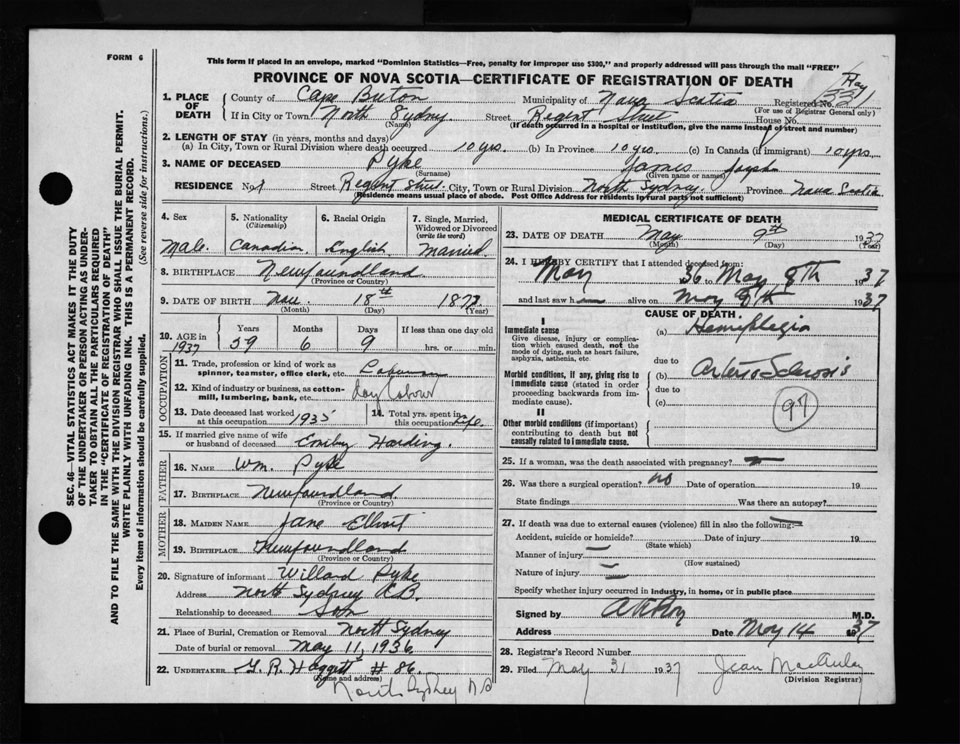 FORM 6
This form if placed in an envelope, marked "Dominion Statistics—Free, penalty for improper use $300," and properly addressed will pass through the mail "FREE"
PROVINCE OF NOVA SCOTIA—CERTIFICATE OF REGISTRATION OF DEATH
May
SEC. 46—VITAL STATISTICS ACT MAKES IT THE DUTY
OF THE UNDERTAKER OR PERSON ACTING AS UNDER-
TAKER TO OBTAIN ALL THE PARTICULARS REQUIRED
IN THE "CERTIFICATE OF REGISTRATION OF DEATH"
AND TO FILE THE SAME WITH THE DIVISION REGISTRAR WHO SHALL ISSUE THE BURIAL PERMIT.
WRITE PLAINLY WITH UNFADING INK. THIS IS A PERMANENT RECORD.
Every item of information should be carefully supplied. (See reverse side for instructions.)
1. PLACE OF DEATH
County of Cape Breton Municipality of Nova Scotia Registered No.
(For use of Registrar General only)
If in City or Town North Sydney Street Regent Street House No.
(Name) (If death occurred in a hospital or institution, give the name instead of street and number)
2. LENGTH OF STAY (in years, months and days)
(a) In City, Town or Rural Division where death occurred 10 yrs. (b) In Province 10 yrs. (c) In Canada (if immigrant) 10 yrs
3. NAME OF DECEASED Pyke James Joseph
(Surname) (Given name or names)
RESIDENCE No. Street Regent Street City, Town or Rural Division North Sydney Province Nova Scotia
(Residence means usual place of abode. Post Office Address for residents in rural parts not sufficient)
4. Sex Male
5. Nationality (Citizenship) Canadian
6. Racial Origin English
7. Single, Married, Widowed or Divorced (write the word) Married
8. BIRTHPLACE Newfoundland
(Province or Country)
9. DATE OF BIRTH 18th
(Month) (Day) (Year)
10. AGE in 1937 Years 59 Months 6 Days 9 If less than one day old hrs. or min.
OCCUPATION
11. Trade, profession or kind of work as spinner, teamster, office clerk, etc. Labourer
12. Kind of industry or business, as cotton-mill, lumbering, bank, etc. Day Labour
13. Date deceased last worked at this occupation 1935
14. Total yrs. spent in this occupation Life
15. If married give name of wife or husband of deceased Emily Harding
FATHER
16. NAME Wm. Pyke
17. BIRTHPLACE Newfoundland
(Province or Country)
MOTHER
18. MAIDEN NAME Jane Elliott
19. BIRTHPLACE Newfoundland
(Province or Country)
20. Signature of informant Willard Pyke
Address North Sydney C.B.
Relationship to deceased Son
21. Place of Burial, Cremation or Removal North Sydney
Date of burial or removal May 11, 1936
22. UNDERTAKER G. R. Haggett # 86.
(Name and address)
North Sydney N S
MEDICAL CERTIFICATE OF DEATH
23. DATE OF DEATH May 9th 1937
(Month) (Day) (Year)
24. I HEREBY CERTIFY that I attended deceased from:
May 36 to May 8th 1937
and last saw h alive on May 8th 1937
CAUSE OF DEATH
I
Immediate cause
Give disease, injury, or complication which caused death, not the mode of dying, such as heart failure, asphyxia, asthenia, etc
(a) Hemiplegia
due to
Morbid conditions, if any, giving rise to immediate cause (stated in order proceeding backwards from immediate cause).
(b) Arterio Sclerosis
due to
(c)
97
II
Other morbid conditions (if important) contributing to death but not causally related to immediate cause.
25. If a woman, was the death associated with pregnancy?
26. Was there a surgical operation? no Date of operation 19
State findings Was there an autopsy?
27. If death was due to external causes (violence) fill in also the following:
Accident, suicide or homicide? Date of injury 19
(State which)
Manner of injury
(How sustained)
Nature of injury
Specify whether injury occurred in industry, in home, or in public place
Signed by M.D.
Address Date May 14 1937
28. Registrar's Record Number
29. Filed May 31 1937 Jean MacAuley
(Division Registrar)